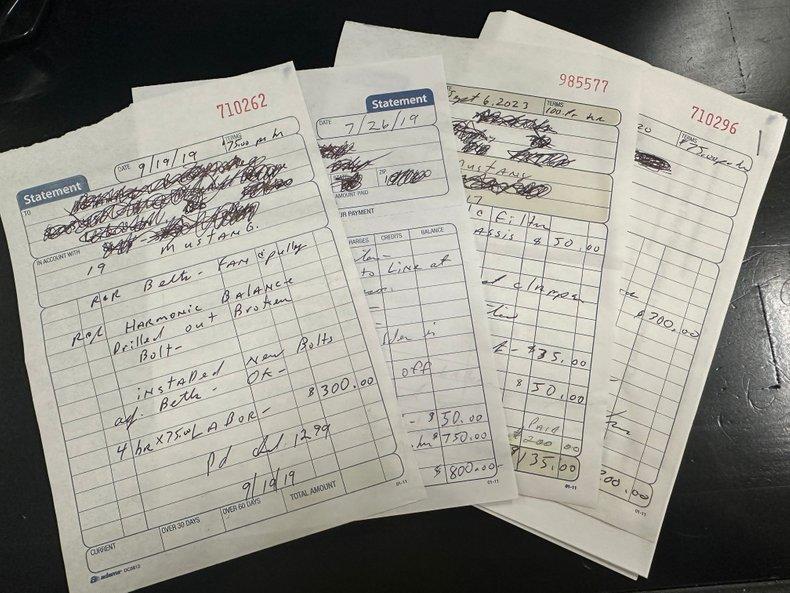 710262
Statement
DATE 9/19/19
TERMS $75.00 per hr
TO
MUSTANG.
IN ACCOUNT WITH
19
R&R Belts - FAN & pully
R&R HARMONIC BALANCE
Drilled out Broken
Bolt-
installed New Bolts
adj. Belts - OK-
4 hr x 75.00 LABOR - $300.00
Pd 1299
9/19/19
CURRENT
OVER 30 DAYS
OVER 60 DAYS
TOTAL AMOUNT
01-11
adams DC5812
Statement
DATE 7/26/19
ZIP
AMOUNT PAID
UR PAYMENT
CHARGES
CREDITS
BALANCE
to Line at
off
- $50.00
$750.00
$800.00
01-11
985577
Sept 6, 2023
TERMS
100.Pr hr
MUSTANG
17
c Filter
ASSIS $50.00
d clamps
- $35.00
$50.00
PAID
$200.00
$135.00
01-11
710296
20
TERMS
$75.00 per hr
$300.00
00.00
01-11